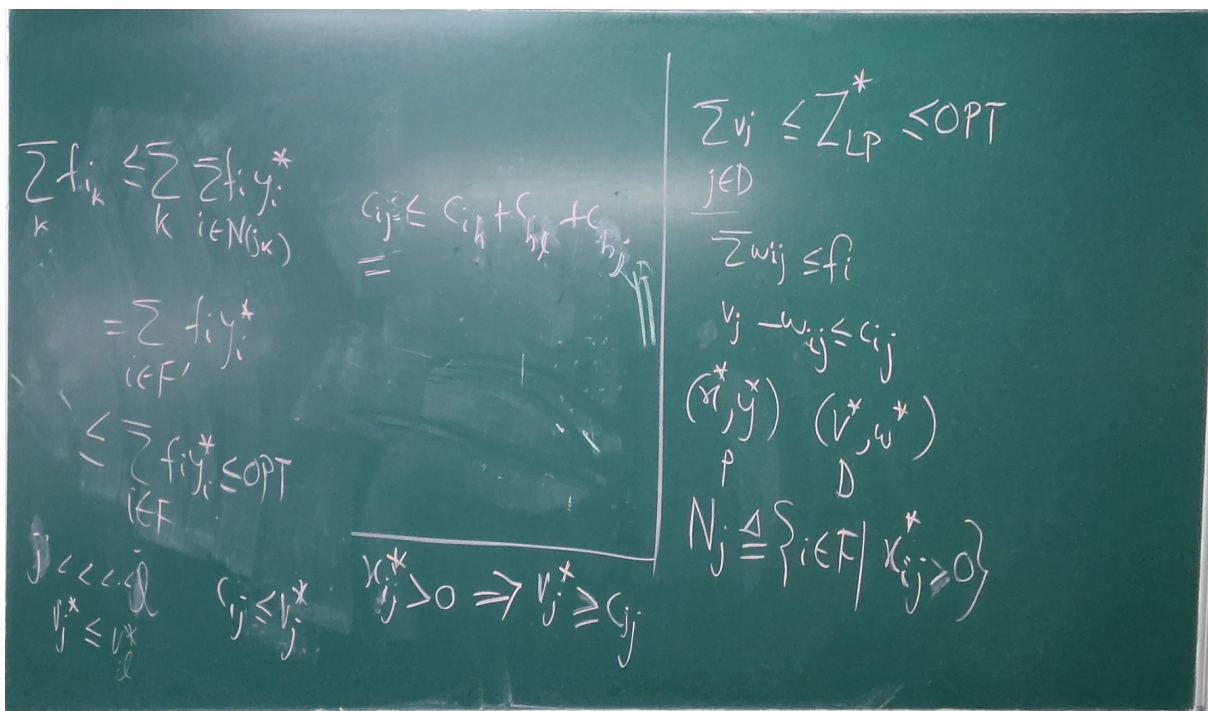 ∑_k f_{i_k} ≤ ∑_k ∑_{i∈N(j_k)} f_i y_i^*
= ∑_{i∈F'} f_i y_i^*
≤ ∑_{i∈F} f_i y_i^* ≤ OPT
j < < < . l
v_j^* ≤ v_l^*
c_{ij} ≤ v_j^*
c_{ij} ≤ c_{ih} + c_{hl} + c_{hj}
x_{ij}^* > 0 ⇒ v_j^* ≥ c_{ij}
∑_{j∈D} v_j ≤ Z_{LP}^* ≤ OPT
∑ w_{ij} ≤ f_i
v_j - w_{ij} ≤ c_{ij}
(x^*, y^*) (v^*, w^*)
P D
N_j ≜ {i∈F | x_{ij}^* > 0}